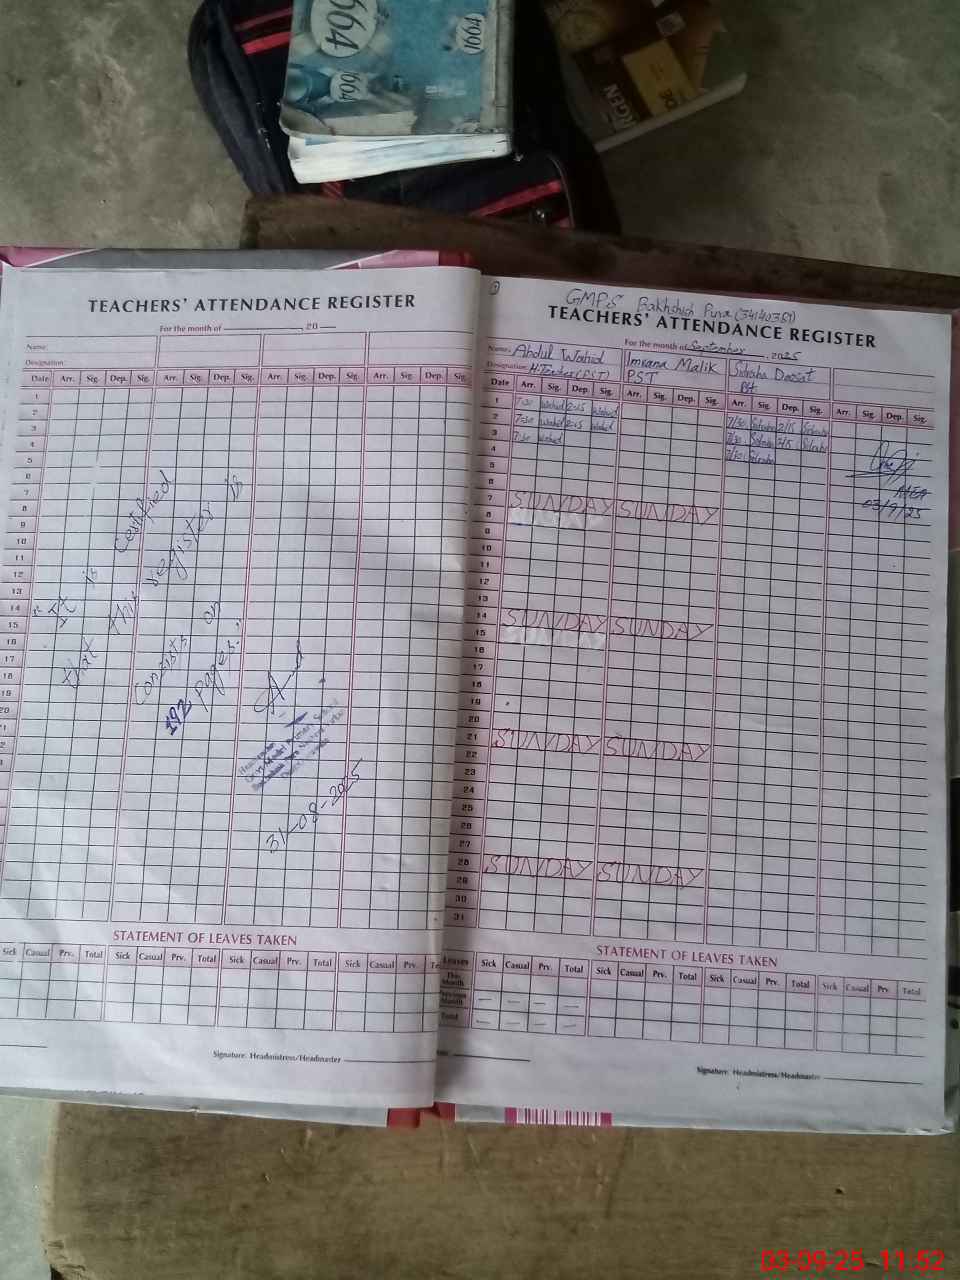 1664
1664
1664
TEACHERS' ATTENDANCE REGISTER
For the month of 20
Name:
Designation:
Date Arr. Sig. Dep. Sig. Arr. Sig. Dep. Sig. Arr. Sig. Dep. Sig. Arr. Sig. Dep. Sig.
1
2
3
4
5
6
7
8
9
10
11
12
13
14
15
16
17
18
19
20
21
It is Certified
that this register is
Consists on
192 Pages."
31-08-2025
STATEMENT OF LEAVES TAKEN
Sick Casual Prv. Total Sick Casual Prv. Total Sick Casual Prv. Total Sick Casual Prv.
Signature: Headmistress/Headmaster
GMPS Bakhshish Pura (34140351)
TEACHERS' ATTENDANCE REGISTER
For the month of September 2025
Name: Abdul Wahid Imrana Malik Sidraha Doosat
Designation: H.Teacher (PST) PST PST
Date Arr. Sig. Dep. Sig. Arr. Sig. Dep. Sig. Arr. Sig. Dep. Sig. Arr. Sig. Dep. Sig.
1 7:30 Wahid 2:15 Wahid 7/30 Sidraha 2/15 Sidraha
2 7:30 Wahid 2:15 Wahid 7/30 Sidraha 2/15 Sidraha
3 7:30 Wahid 7/30 Sidraha
4
5
6
7 SUNDAY SUNDAY
8
9
10
11
12
13
14 SUNDAY SUNDAY
15
16
17
18
19
20
21 SUNDAY SUNDAY
22
23
24
25
26
27
28 SUNDAY SUNDAY
29
30
31
MEA
03/9/25
STATEMENT OF LEAVES TAKEN
Leaves Sick Casual Prv. Total Sick Casual Prv. Total Sick Casual Prv. Total Sick Casual Prv. Total
This Month
Previous Month — — — —
Total — — — —
Signature: Headmistress/Headmaster
03-09-25 11:52